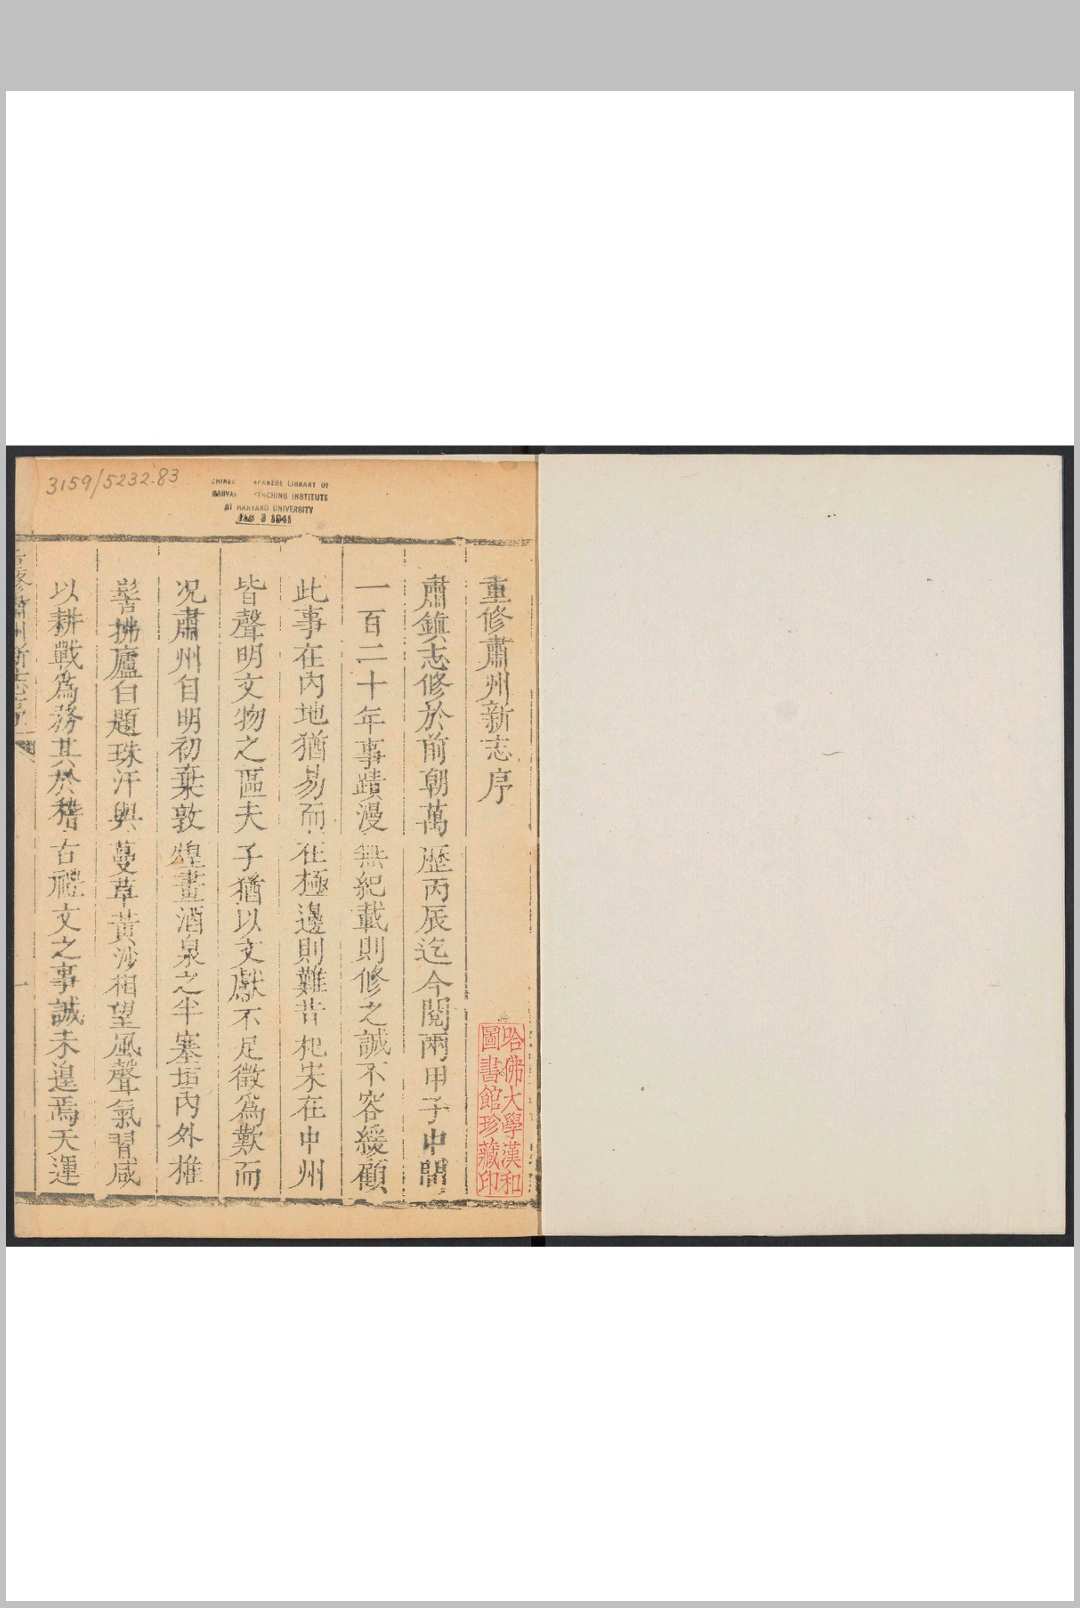 3159/5232.83
LIBRARY OF
CHING INSTITUTE
AT HARVARD UNIVERSITY
1941
重修肅州新志序
肅鎮志修於前朝萬歷丙辰迄今閱兩甲子中間
一百二十年事蹟漫無紀載則修之誠不容緩顧
此事在內地猶易而在極邊則難昔杞宋在中州
皆聲明文物之區夫子猶以文獻不足徵爲歎而
况肅州自明初棄敦煌畫酒泉之半塞垣內外椎
髻拂廬白題珠汗與蔓草黃沙相望風聲氣習咸
以耕戰爲務其於稽古禮文之事誠未遑焉天運
重修肅州新志序
一
哈佛大學漢和
圖書館珍藏印